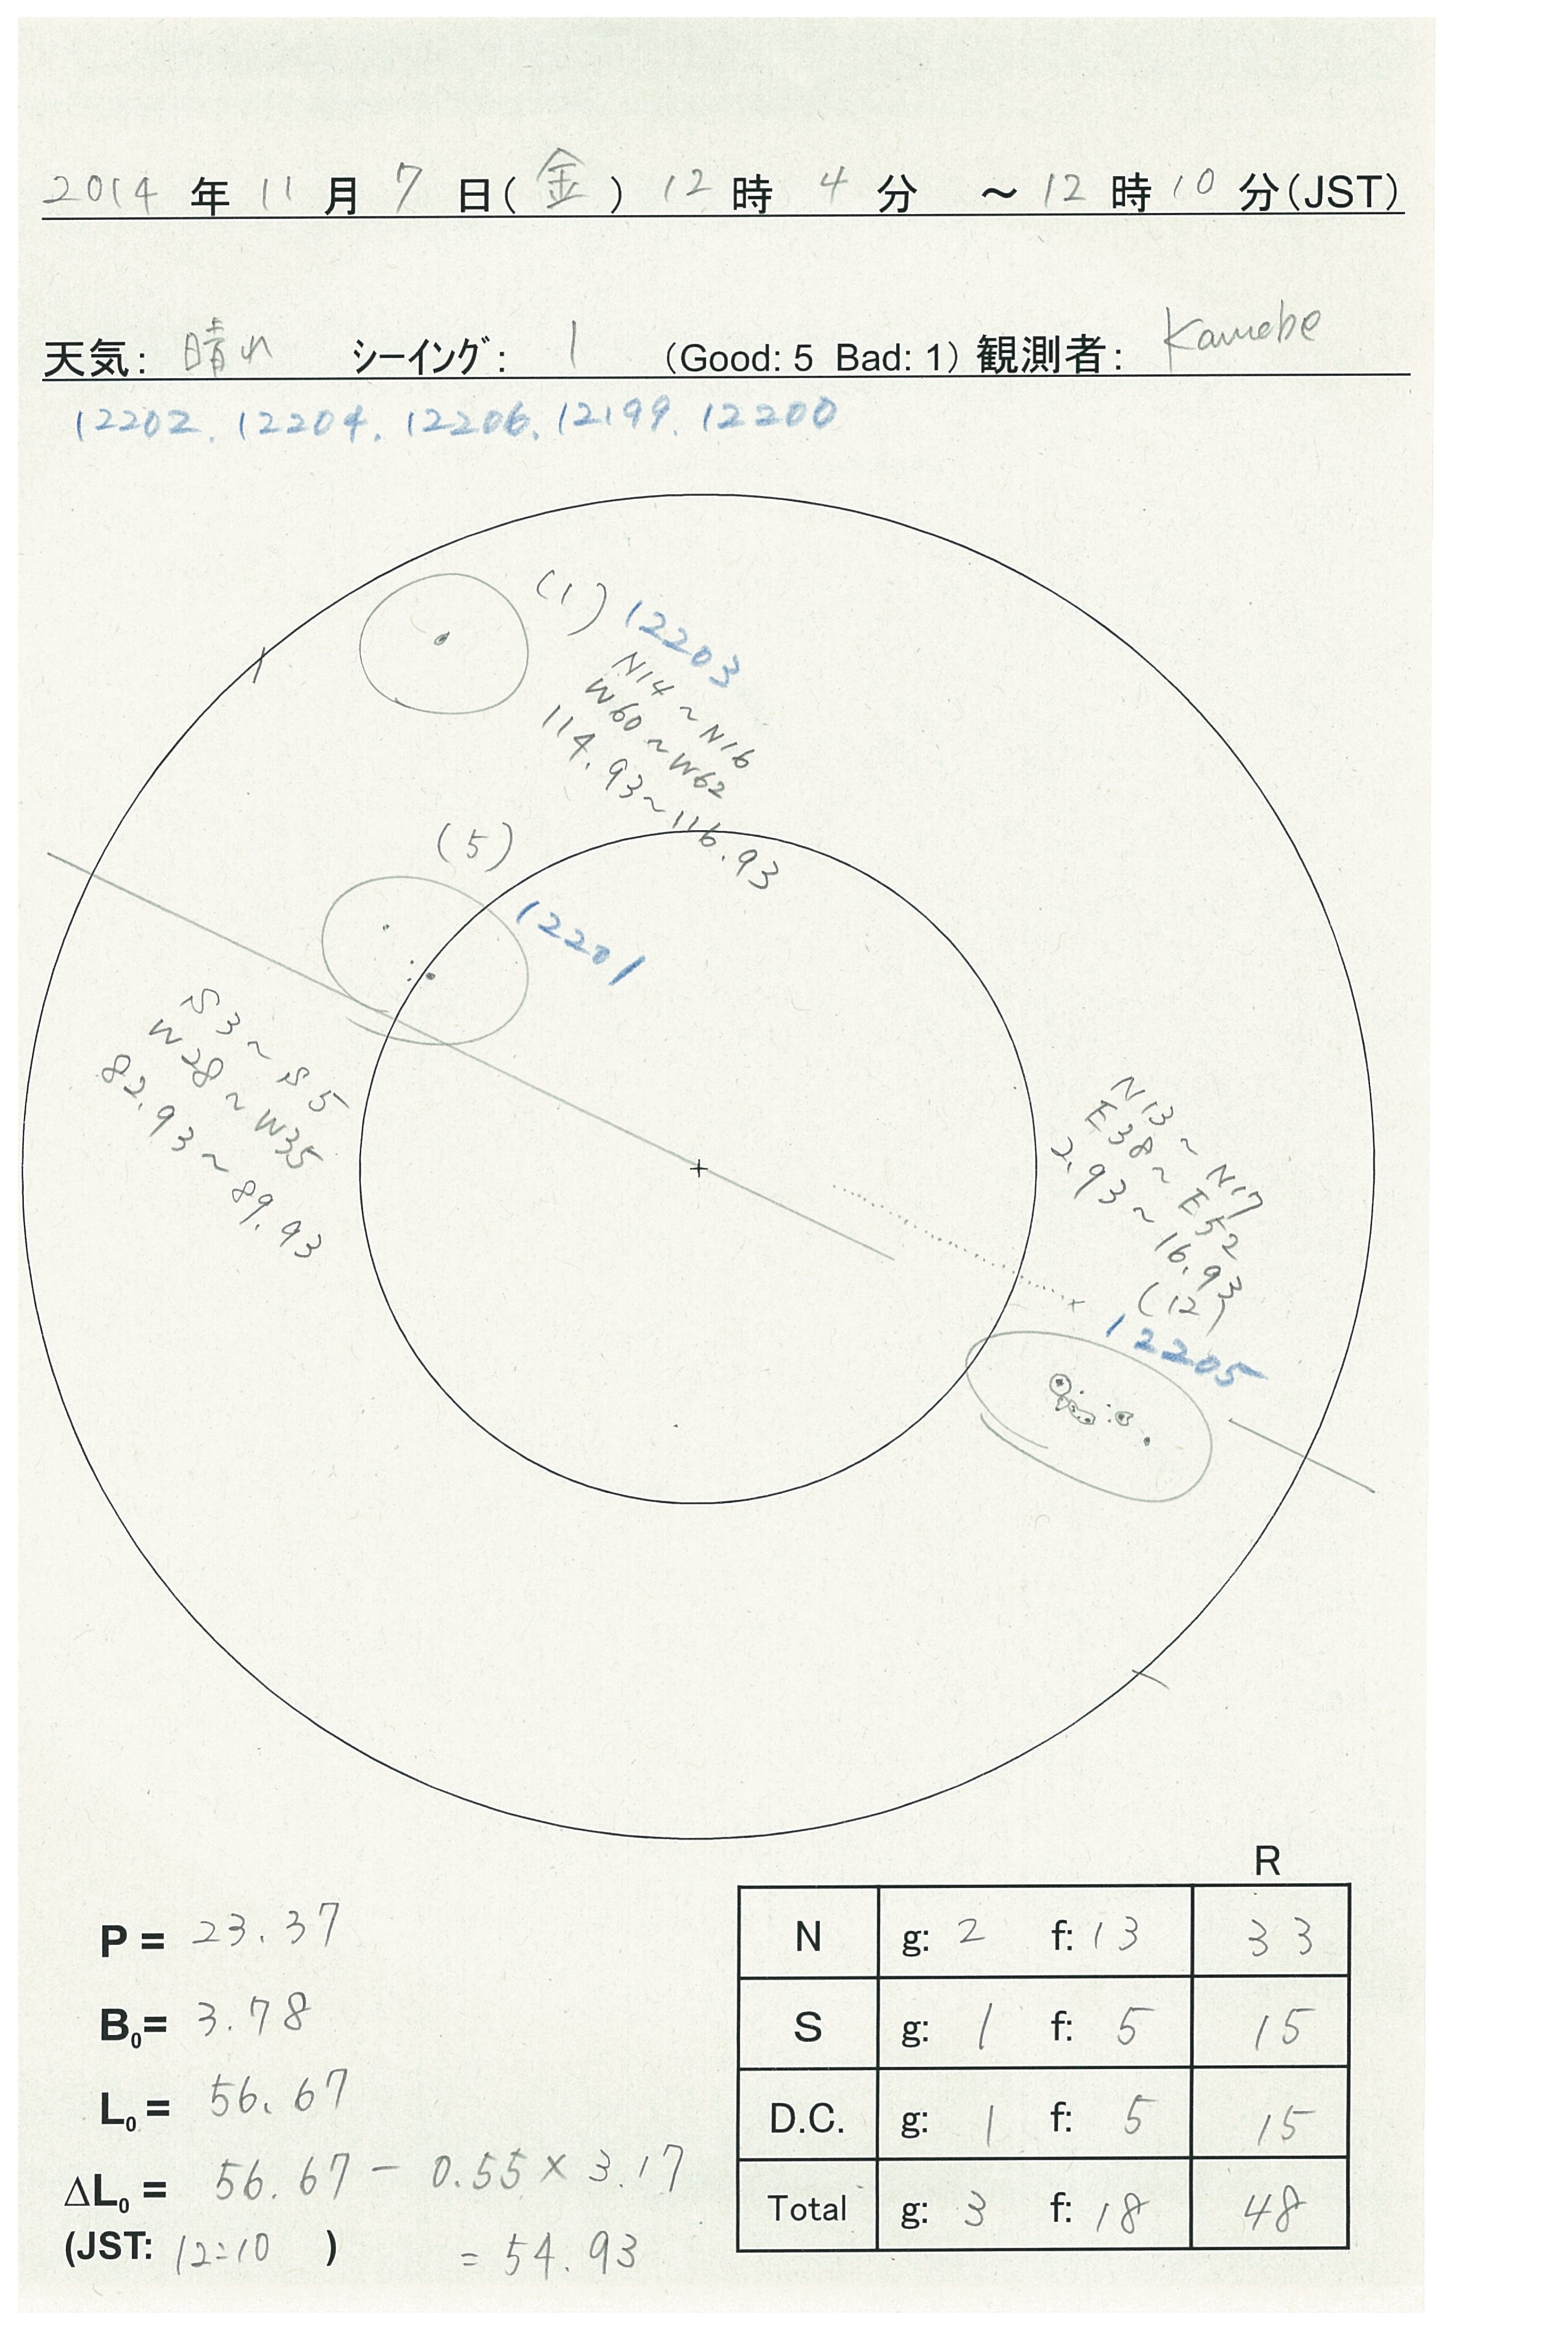 2014 年 11 月 7 日(金) 12 時 4 分 ～ 12 時 10 分(JST)
天気: 晴れ シーイング: 1 (Good: 5 Bad: 1) 観測者: Kamobe
12202. 12204. 12206. 12199. 12200
(1) 12203
N14~N16
W60~W62
114.93~116.93
(5)
12201
S3~S5
W28~W35
82.93~89.93
N13~N17
E38~E52
2.93~16.93
(12)
12205
P = 23.37
B₀= 3.78
L₀= 56.67
ΔL₀= 56.67 - 0.55 × 3.17
(JST: 12:10 ) = 54.93
R
N g: 2 f: 13 33
S g: 1 f: 5 15
D.C. g: 1 f: 5 15
Total g: 3 f: 18 48